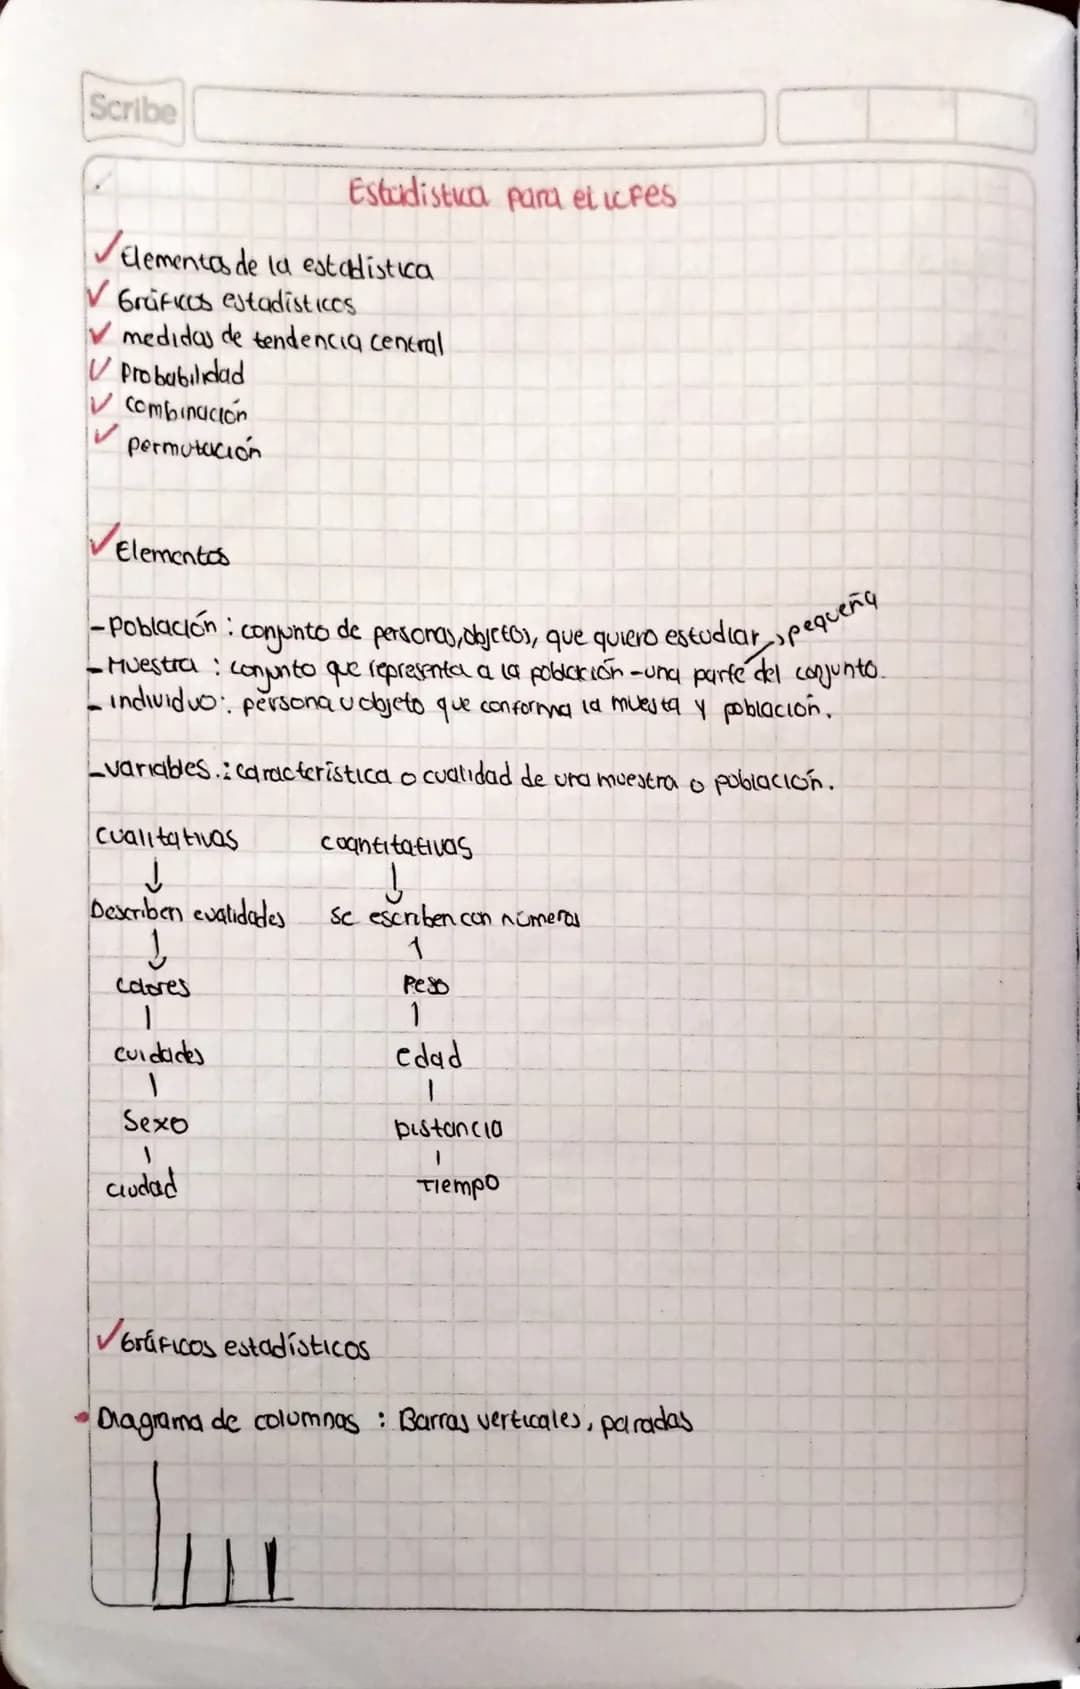 Scribe
Estadistica para el icfes
✓ Elementos de la estadística
✓ Gráficos estadísticos
✓ medidas de tendencia central
✓ Probabilidad
✓ combinación
✓ permutación
✓ Elementos
- Población : conjunto de personas, objetos, que quiero estudiar
→ pequeña
- Muestra : conjunto que representa a la población - una parte del conjunto.
- individuo : persona u objeto que conforma la muesta y población.
- variables. : característica o cualidad de una muestra o población.
cualitativas coantitativas
↓ ↓
Describen cualidades se escriben con números
↓ |
colores Peso
| |
cuidades edad
| |
Sexo Distancia
| |
ciudad Tiempo
✓ Gráficos estadísticos
• Diagrama de columnas : Barras verticales, paradas